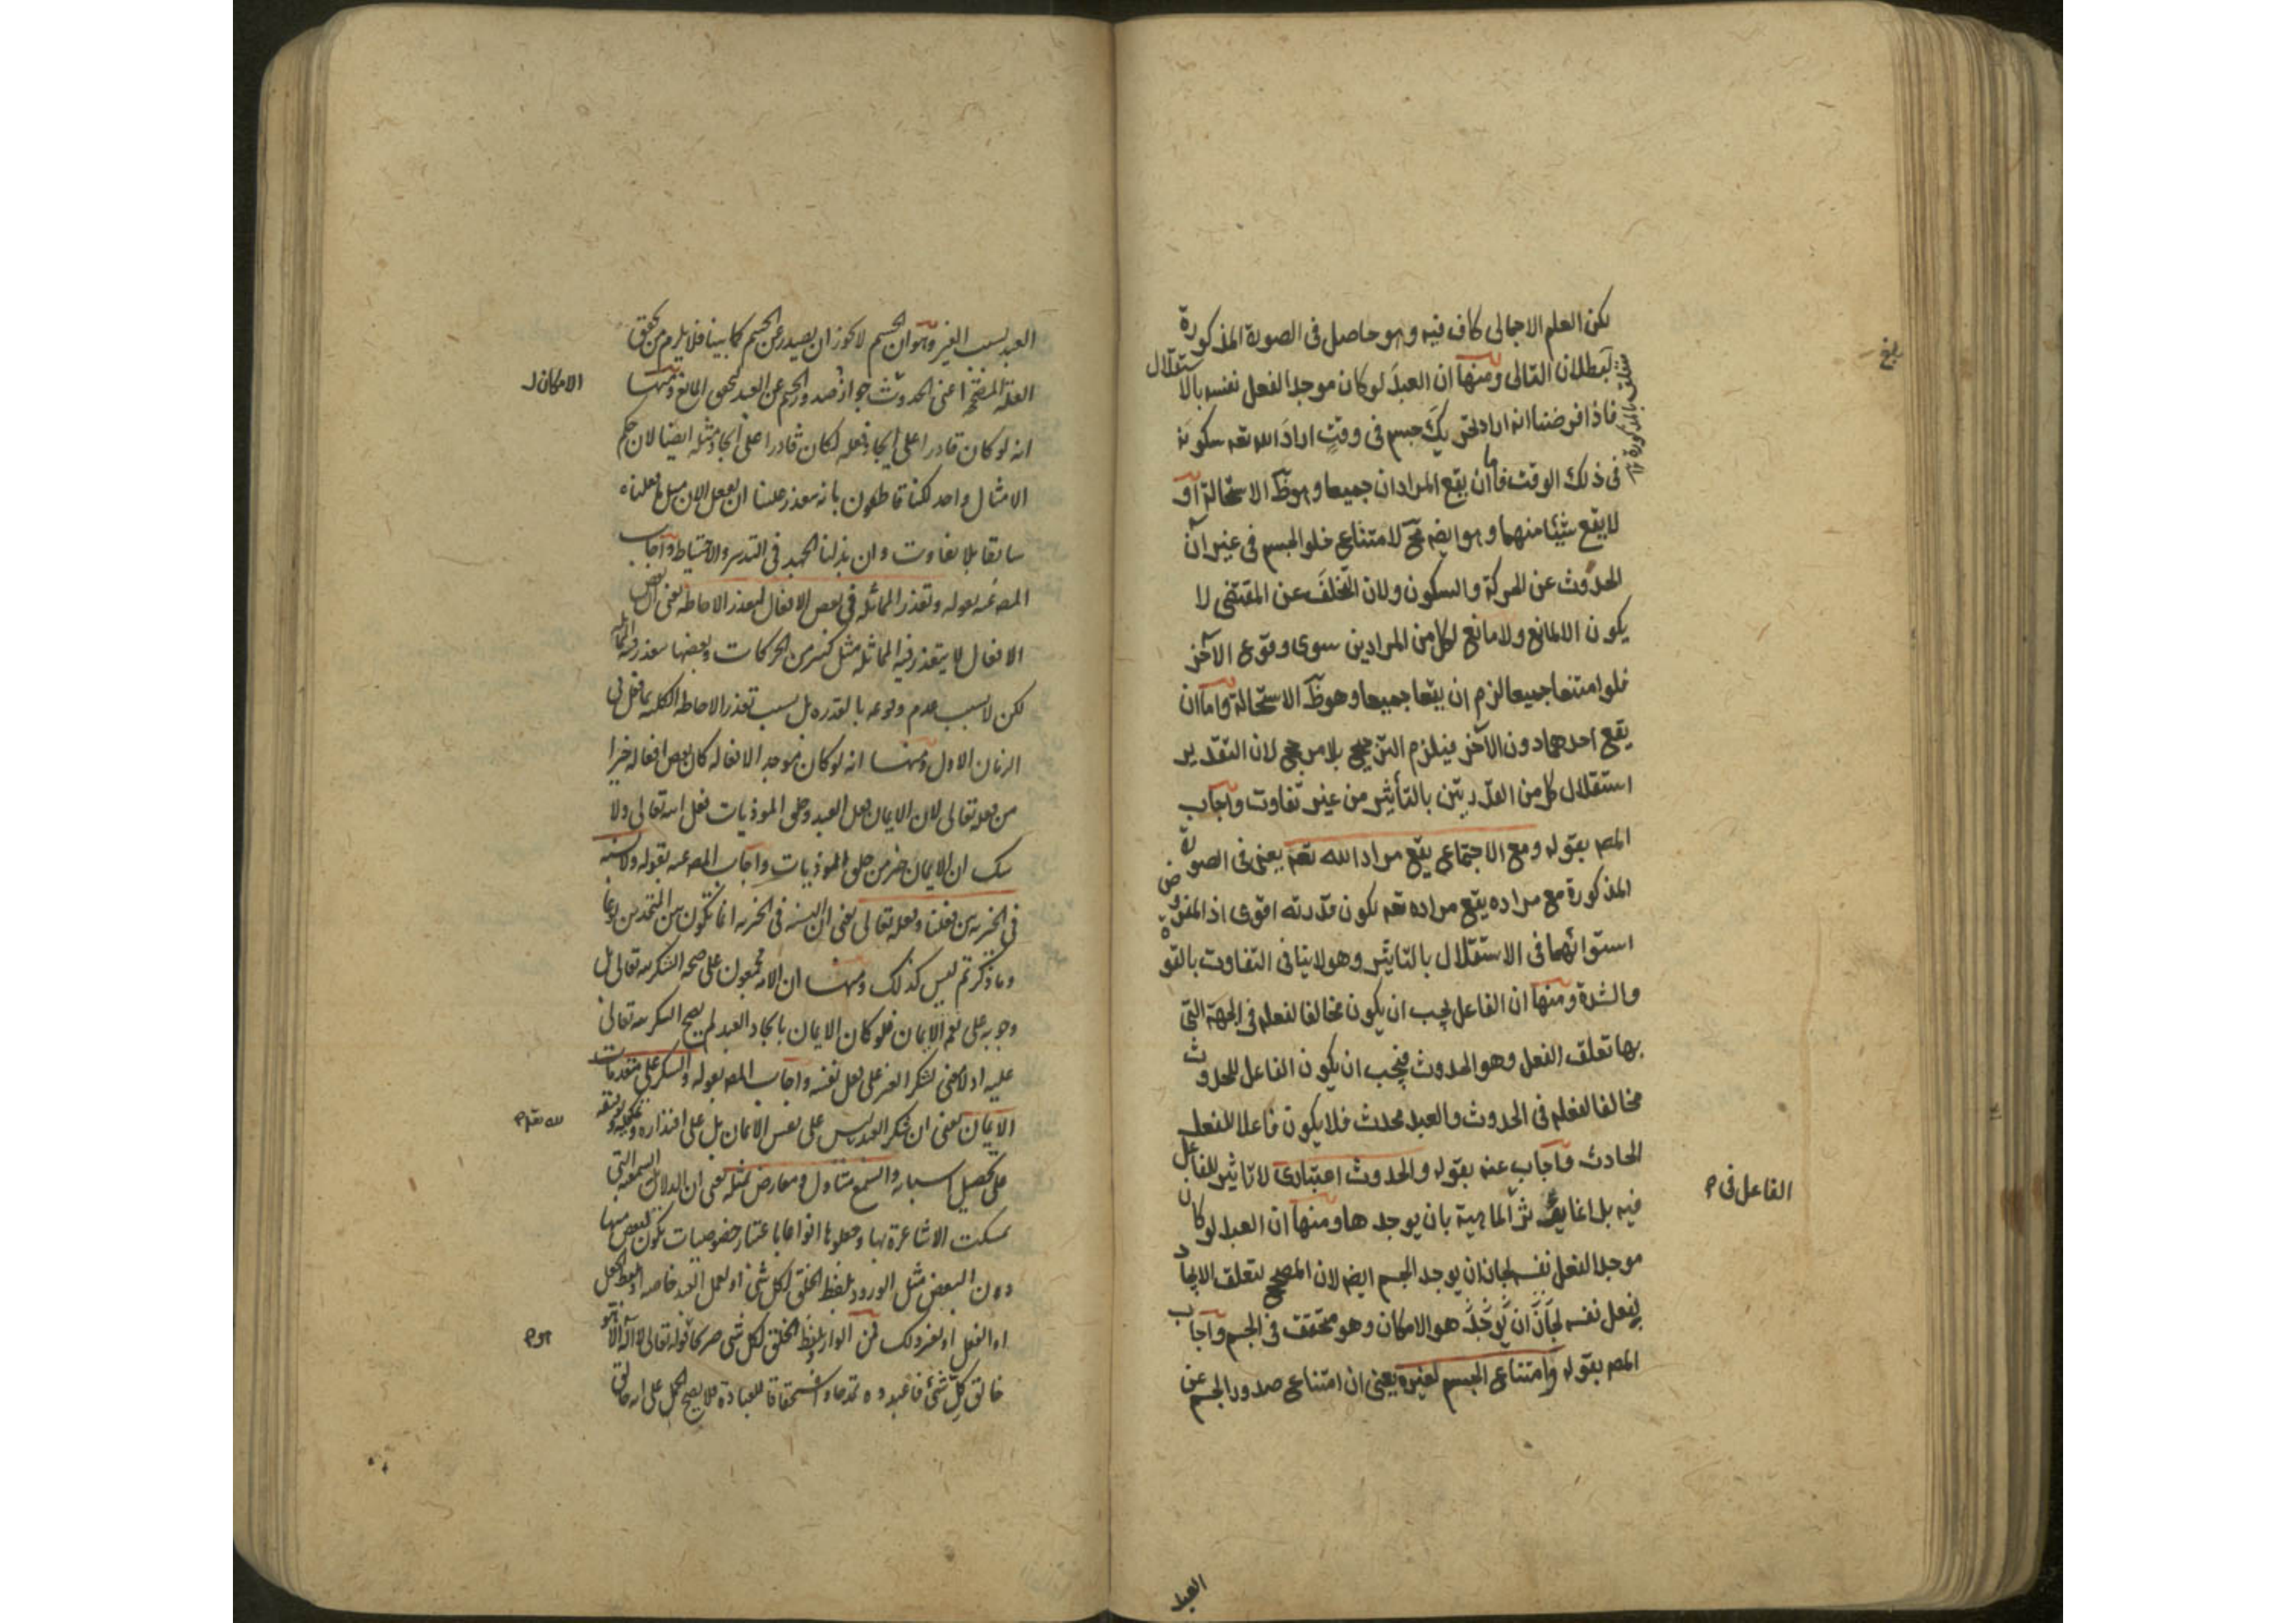 لكن العلم الاجمالى كاف فيه وهو حاصل فى الصورة المذكورة
لبطلان التالى ومنها ان العبد لوكان موجدا لفعل نفسه بالاستقلال
فاذا فرضنا انه اراد تحريك جسم فى وقت اراد الله تعه سكونه
فى ذلك الوقت فاما ان يقع المرادان جميعا وهو ظ الاستحالة او
لا يقع شيئا منهما وهو ايضه مح لامتناع خلو الجسم فى غير آن
الحدوث عن الحركة والسكون ولان التخلف عن المقتضى لا
يكون الا لمانع ولا مانع لكل من المرادين سوى وقوع الآخر
فلو امتنعا جميعا لزم ان يقعا جميعا وهو ظ الاستحالة واما ان
يقع احدهما دون الآخر فيلزم الترجيح بلا مرجح لان التقدير
استقلال كل من القدرتين بالتأثير من غير تفاوت واجاب
المصه بقوله ومع الاجتماع يقع مراد الله تعه يعنى فى الصورة
المذكورة مع مراده يقع مراده تعه لكون قدرته اقوى اذ المفروض
استوائهما فى الاستقلال بالتاثير وهو لا ينافى التفاوت بالقوة
والشدة ومنها ان الفاعل يجب ان يكون مخالفا لفعله فى الجهة التى
بها تعلق الفعل وهو الحدوث فيجب ان يكون الفاعل للحدوث
مخالفا لفعله فى الحدوث والعبد محدث فلا يكون فاعلا للفعل
الحادث واجاب عنه بقوله والحدوث اعتبارى لا تاثير للفاعل
فيه بل انما يؤثر الماهية بان يوجدها ومنها ان العبد لو كان
موجدا لفعل نفسه لجاز ان يوجد الجسم ايضه لان المصحح لتعلق الايجاد
بفعل نفسه لجاز ان يوجد هو الامكان وهو متحقق فى الجسم واجاب
المصه بقوله وامتناع الجسم لغيره يعنى ان امتناع صدور الجسم عن
متعلق بالمذكورة
بلغ
الفاعل فى
العبد
العبد بسبب الغير وهو ان الجسم لا يجوز ان يصدر عن الجسم كما بينا فلا يلزم من تحقق
العلة المصححة اعنى الحدوث جواز صدور الجسم عن العبد لتحقق المانع ومنها
انه لو كان قادرا على ايجاد فعله لكان قادرا على ايجاد مثله ايضا لان حكم
الامثال واحد لكنا قاطعون بانه يتعذر علينا ان نفعل الان مثل ما فعلناه
سابقا بلا تفاوت وان بذلنا الجهد فى التدبير والاحتياط واجاب
المصه عنه بقوله وتعذر المماثلة فى بعض الافعال لتعذر الاحاطة يعنى ان بعض
الافعال لا يتعذر فيه المماثلة مثل كثير من الحركات وبعضها يتعذر فيه المماثلة
لكن لا بسبب عدم وقوعه بالقدرة بل بسبب تعذر الاحاطة الكلية بما فعل فى
الزمان الاول ومنها انه لو كان موجد الافعاله كان بعض افعاله خيرا
من فعله تعالى لان الايمان فعل العبد وخلق الموذيات فعل الله تعالى ولا
شك ان الايمان خير من خلق الموذيات واجاب المصه عنه بقوله ولا نسبة
فى الخيرية بين فعلنا وفعله تعالى يعنى ان النسبة فى الخيرية انما تكون بين المتحدين نوعا
وما ذكرتم ليس كذلك ومنها ان الامة مجمعون على صحة الشكر لله تعالى بل
وجوبه على نعمة الايمان فلو كان الايمان بايجاد العبد لم يصح الشكر لله تعالى
عليه اذ لا معنى لشكر الغير على فعل نفسه واجاب المصه بقوله والشكر على مقدمات
الايمان يعنى ان شكر العبد ليس على نفس الايمان بل على اقداره وتمكينه وتوفيقه
على تحصيل اسبابه والسمع متاول ومعارض بمثله يعنى ان الدلائل السمعية التى
تمسكت الاشاعرة بها وجعلوها انواعا باعتبار خصوصيات تكون لبعض منها
دون البعض مثل الورود بلفظ الخلق لكل شئ او لعمل العبد خاصة او بلفظ الجعل
او الفعل او بغير ذلك فمن الوارد بلفظ الخلق لكل شئ صريحا قوله تعالى لا اله الا هو
خالق كل شئ فاعبدوه تمدحا واستحقاقا للعبادة فلا يصح الحمل على انه خالق
الامكان